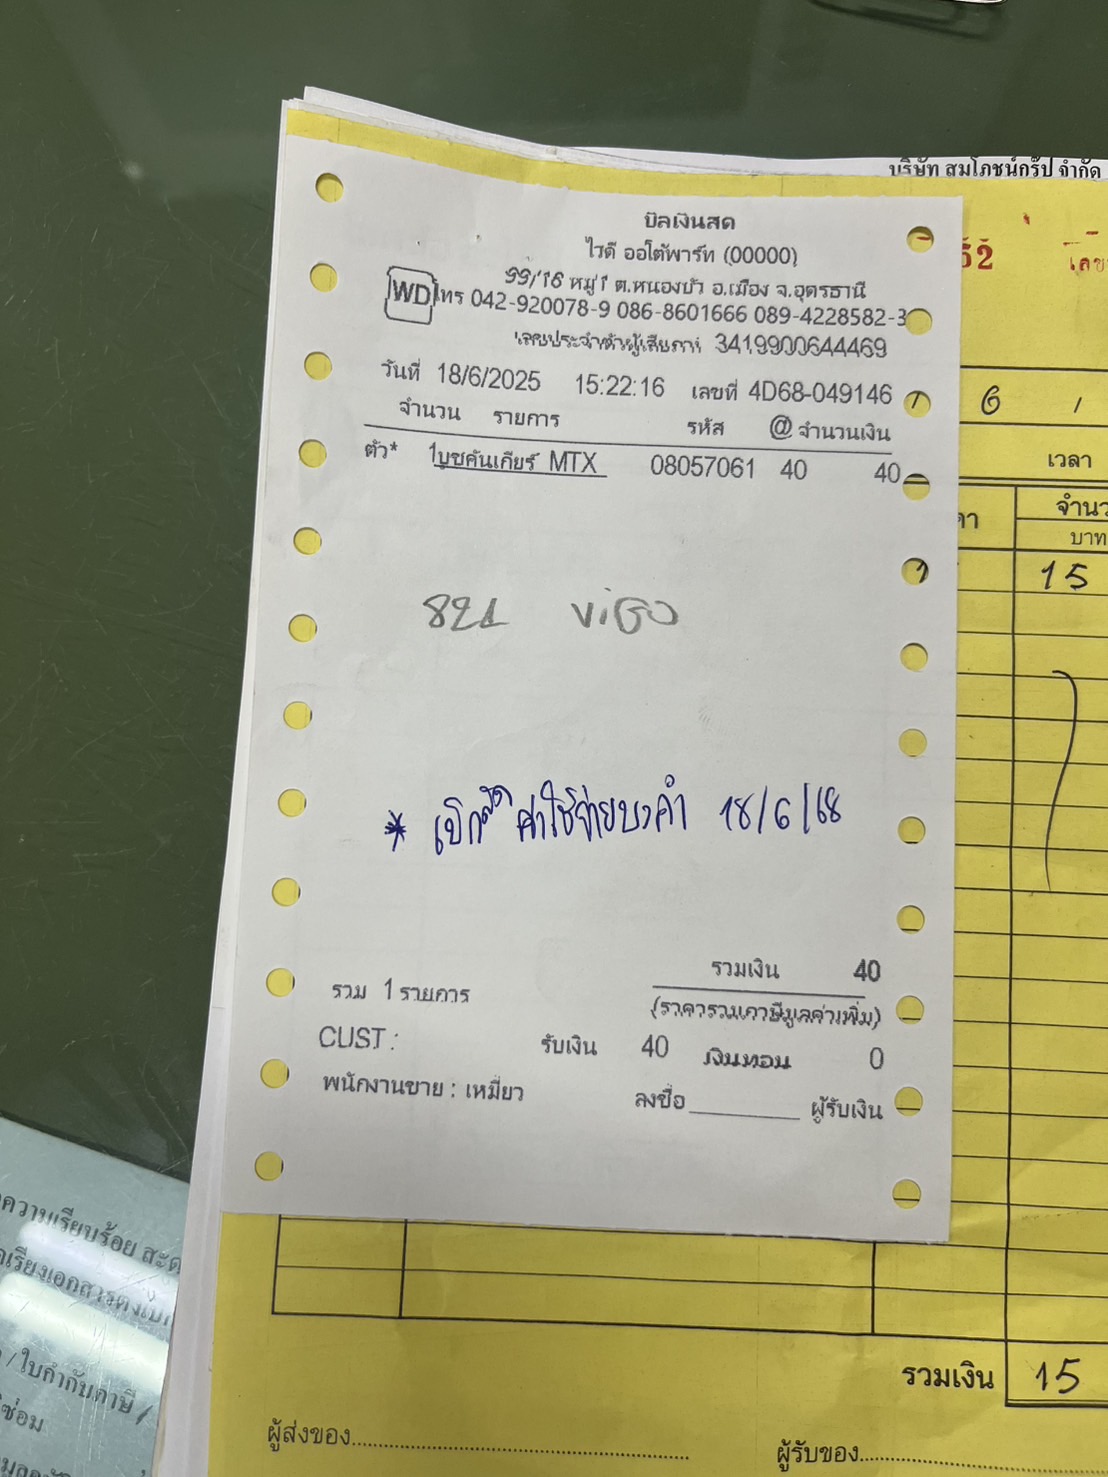 บริษัท สมโภชน์กรุ๊ป จำกัด
บิลเงินสด
ไวดี ออโต้พาร์ท (00000)
99/16 หมู่ 1 ต.หนองบัว อ.เมือง จ.อุดรธานี
WD โทร 042-920078-9 086-8601666 089-4228582-3
เลขประจำตัวผู้เสียภาษี 3419900644469
วันที่ 18/6/2025 15:22:16 เลขที่ 4D68-049146
จำนวน รายการ รหัส @ จำนวนเงิน
ตัว* 1 บูชคันเกียร์ MTX 08057061 40 40
821 ViGO
* เบิก ค่าใช้จ่าย 18/6/68
รวมเงิน 40
รวม 1 รายการ
(ราคารวมภาษีมูลค่าเพิ่ม)
CUST :
รับเงิน 40 เงินทอน 0
พนักงานขาย : เหมียว
ลงชื่อ ผู้รับเงิน
52
6
เวลา
บาท
15
รวมเงิน 15
ผู้ส่งของ
ผู้รับของ
ความเรียบร้อย
/ ใบกำกับภาษี /
ซ่อม